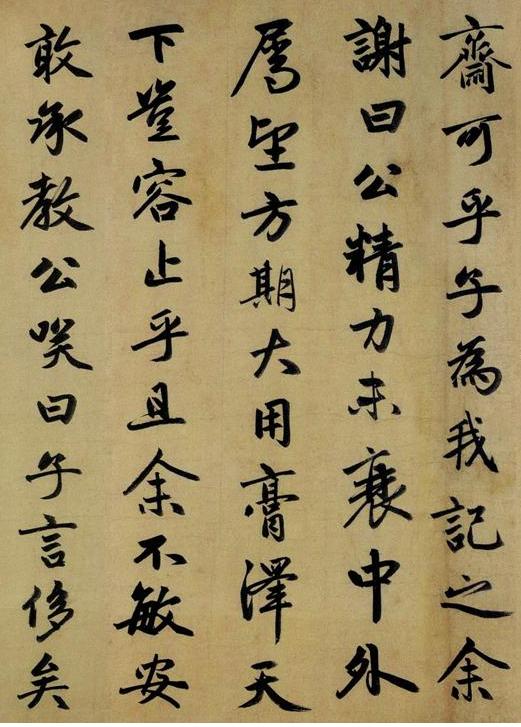 齋可乎子為我記之余
謝曰公精力未衰中外
屬望方期大用膏澤天
下豈容止乎且余不敏安
敢承教公咲曰子言侈矣